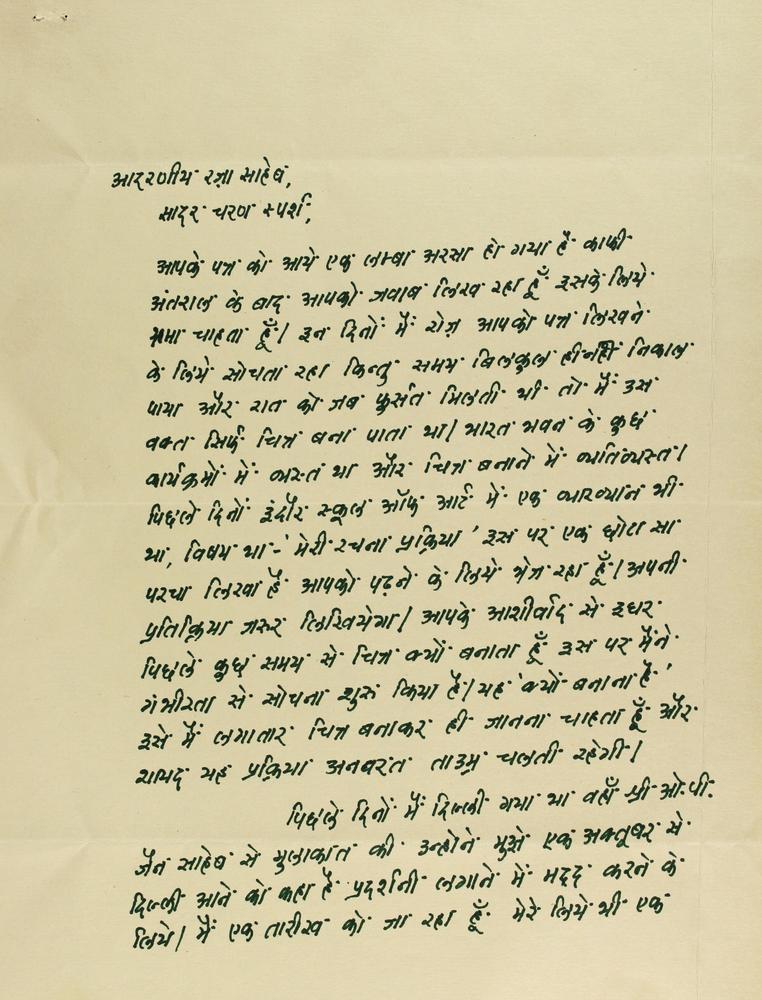 आदरणीय रज़ा साहेब,
सादर चरण स्पर्श,
आपके पत्र को आये एक लम्बा अरसा हो गया है काफी
अंतराल के बाद आपको जवाब लिख रहा हूँ इसके लिये
क्षमा चाहता हूँ। इन दिनों मैं रोज़ आपको पत्र लिखने
के लिये सोचता रहा किन्तु समय बिलकुल ही नहीं निकाल
पाया और रात को जब फुर्सत मिलती थी तो मैं उस
वक्त सिर्फ चित्र बना पाता था। भारत भवन के कुछ
कार्यक्रमों में व्यस्त था और चित्र बनाने में व्यतिव्यस्त।
पिछले दिनों इंदौर स्कूल ऑफ आर्ट में एक व्याख्यान भी
था, विषय था-'मेरी रचना प्रक्रिया' इस पर एक छोटा सा
परचा लिखा है आपको पढ़ने के लिये भेज रहा हूँ। अपनी
प्रतिक्रिया जरूर लिखियेगा। आपके आशीर्वाद से इधर
पिछले कुछ समय से चित्र क्यों बनाता हूँ इस पर मैंने
गंभीरता से सोचना शुरू किया है। यह 'क्यों बनाना है'
इसे मैं लगातार चित्र बनाकर ही जानना चाहता हूँ और
शायद यह प्रक्रिया अनवरत ताउम्र चलती रहेगी।
पिछले दिनों मैं दिल्ली गया था वहाँ श्री ओ.पी.
जैन साहेब से मुलाकात की उन्होने मुझे एक अक्तूबर से
दिल्ली आने को कहा है प्रदर्शनी लगाने में मदद करने के
लिये। मैं एक तारीख को जा रहा हूँ मेरे लिये भी एक